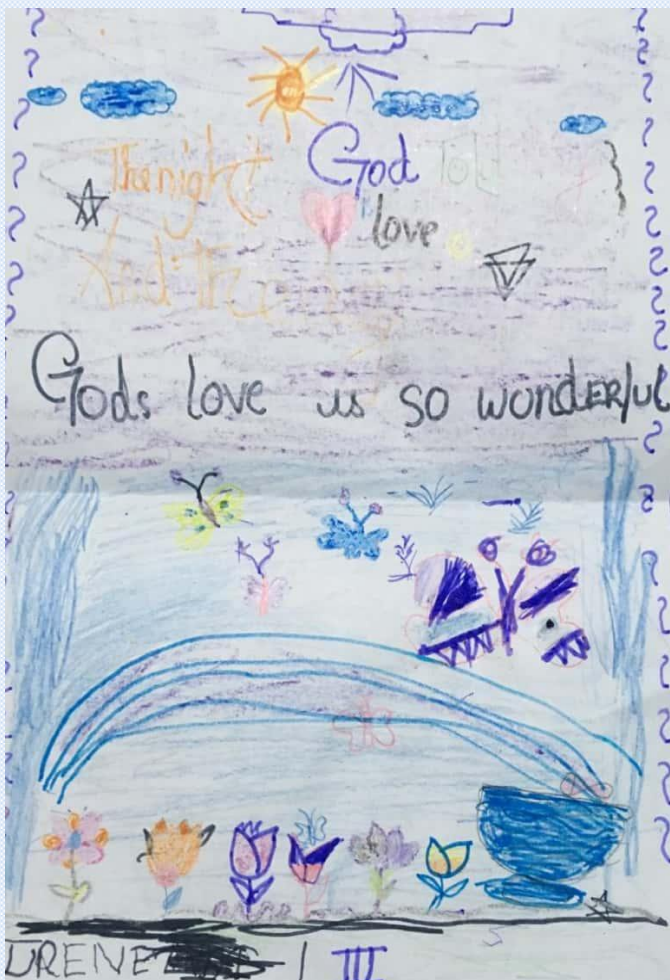 The night God Told
love
And the
Gods love is so wonderful
III